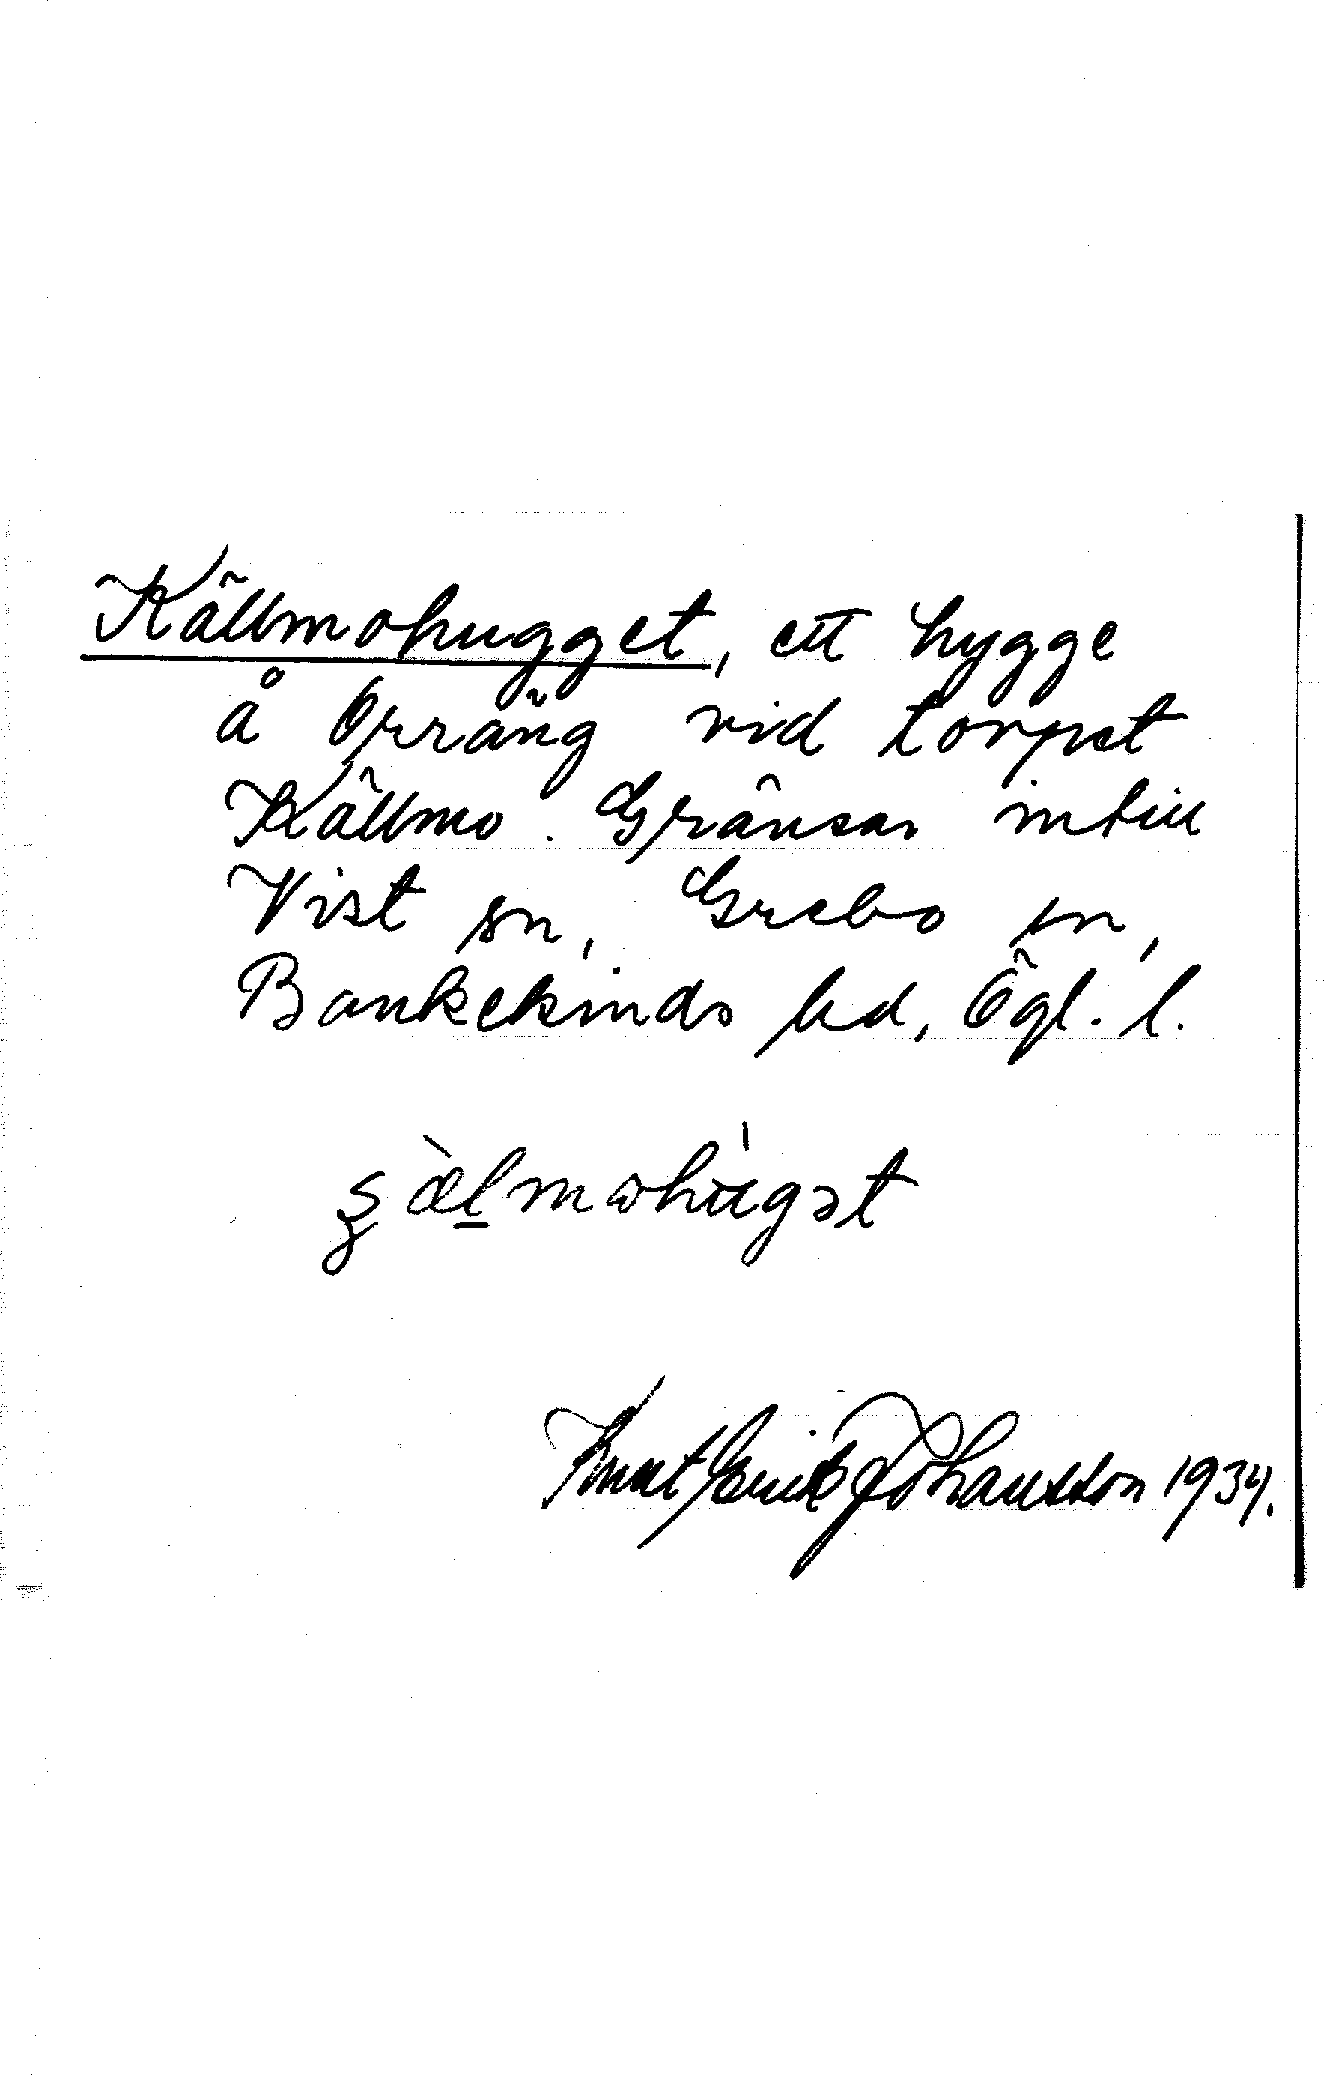 Källmohugget, ett hygge
å Orräng vid torpet
Källmo. Gränsar intill
Vist sn, Grebo sn,
Bankekinds hd, Ögl. l.
ʂæ̀lmωhùgət
Knut Erik Johansson 1934.